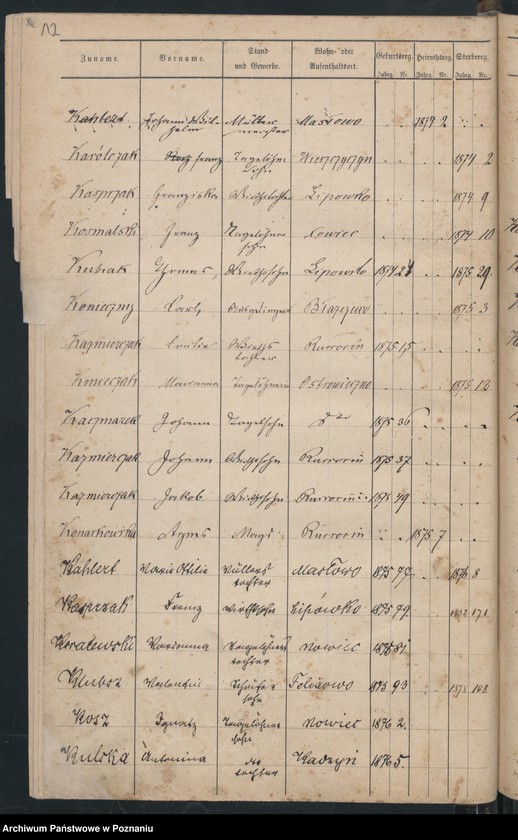 112
Zuname. Vorname. Stand und Gewerbe. Wohn- oder Aufenthaltsort. Geburtsreg. Heirathsreg. Sterbereg.
Jahrg. Nr. Jahrg. Nr. Jahrg. Nr.
Kahlert Johann Wilhelm Müllermeister Masłowo 1874 2
Karólczak Franz Tagelöhner Wieszczyczyn 1874 2
Kasprzak Franziska Wirthstochter Lipowko 1874 9
Kosmalski Franz Tagelöhnersohn Nowiec 1874 10
Kubiak Thomas Wirthssohn Lipowko 1874 1875 29
Konieczny 1875 3
Kazmierczak Emilie Wirthstochter Rusocin 1875 15
Kmieczak Marianna Tagelöhnerin Ostrowieczno 1875 12
Kaczmarek Johann dto 1875 36
Kazmierczak Johann Wirthssohn Rusocin 1875 37
Kazmierczak Jakob Wirthssohn Rusocin 1875 49
Konarkowska Agnes Magd Rusocin 1875 7
Kahlert Marie Ottilie Müllerstochter Masłowo 1875 77 1876 8
Kasprzak Franz Wirthssohn Lipówko 1875 79
Koralewski Marianna Tagelöhnertochter Nowiec 1875 81
Klubsz Valentin Schäfersohn Felixowo 1875 93 1878 108
Kosz Ignatz Tagelöhnersohn Nowiec 1876 2.
Kulska Antonina tochter Kadzyń 1876 5.
Archiwum Państwowe w Poznaniu